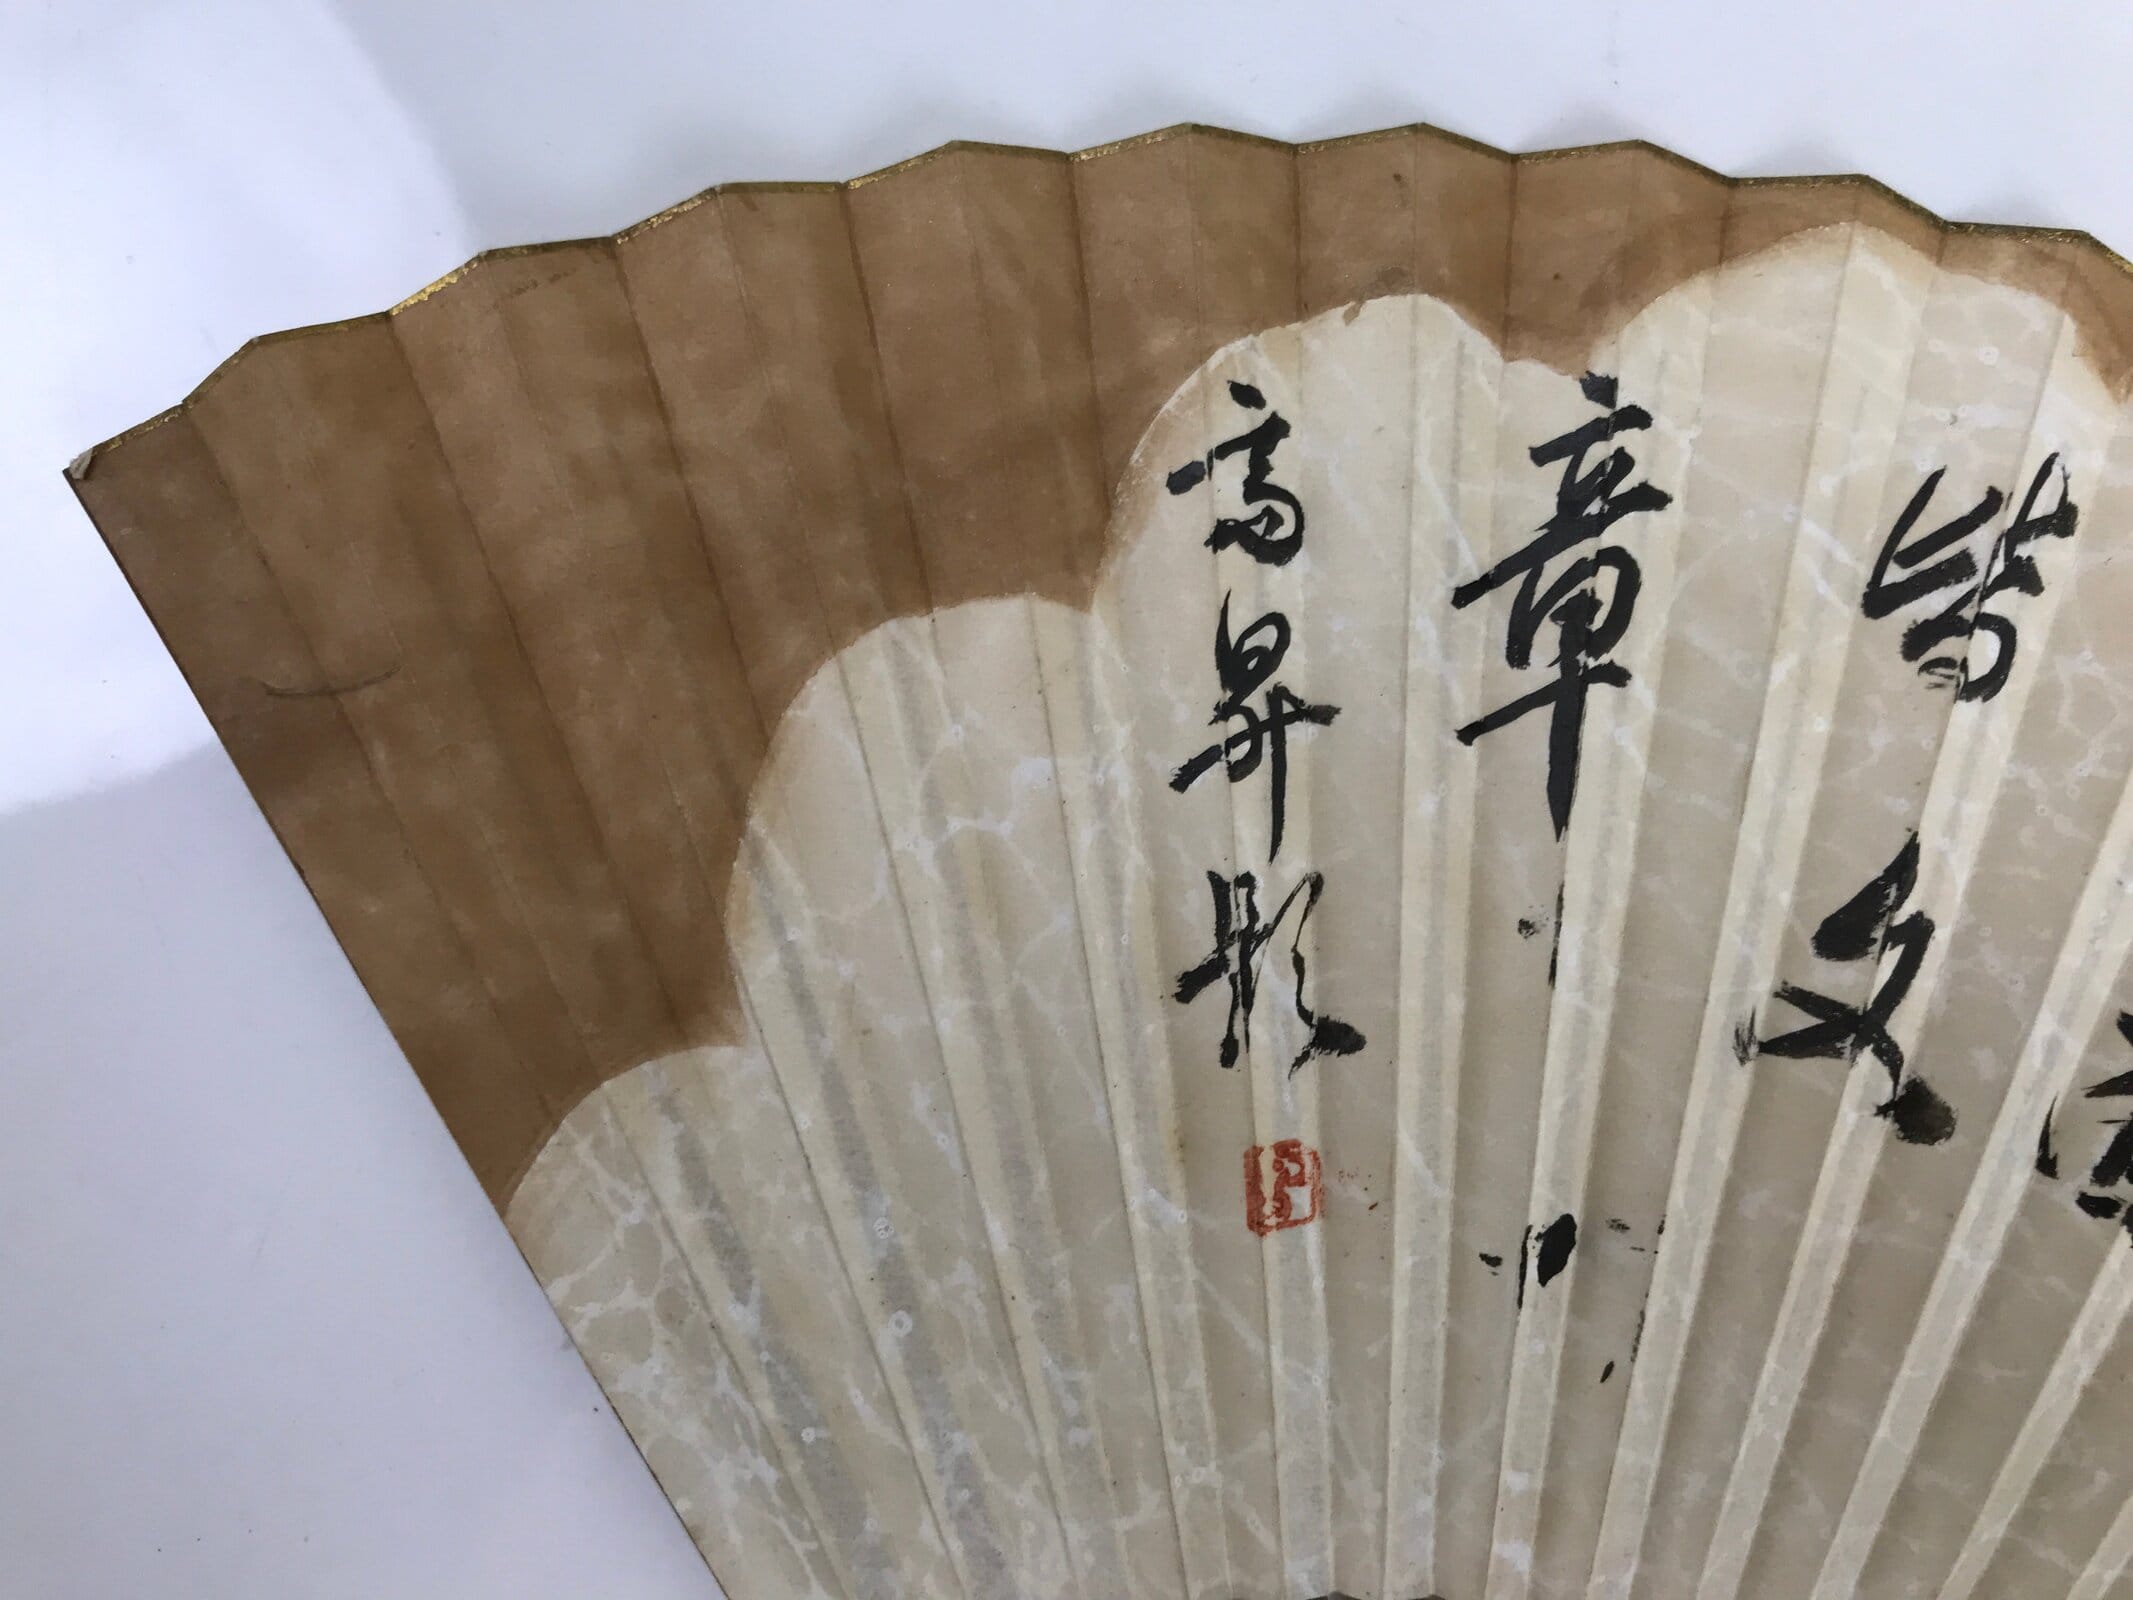 皆文
章
高昇題